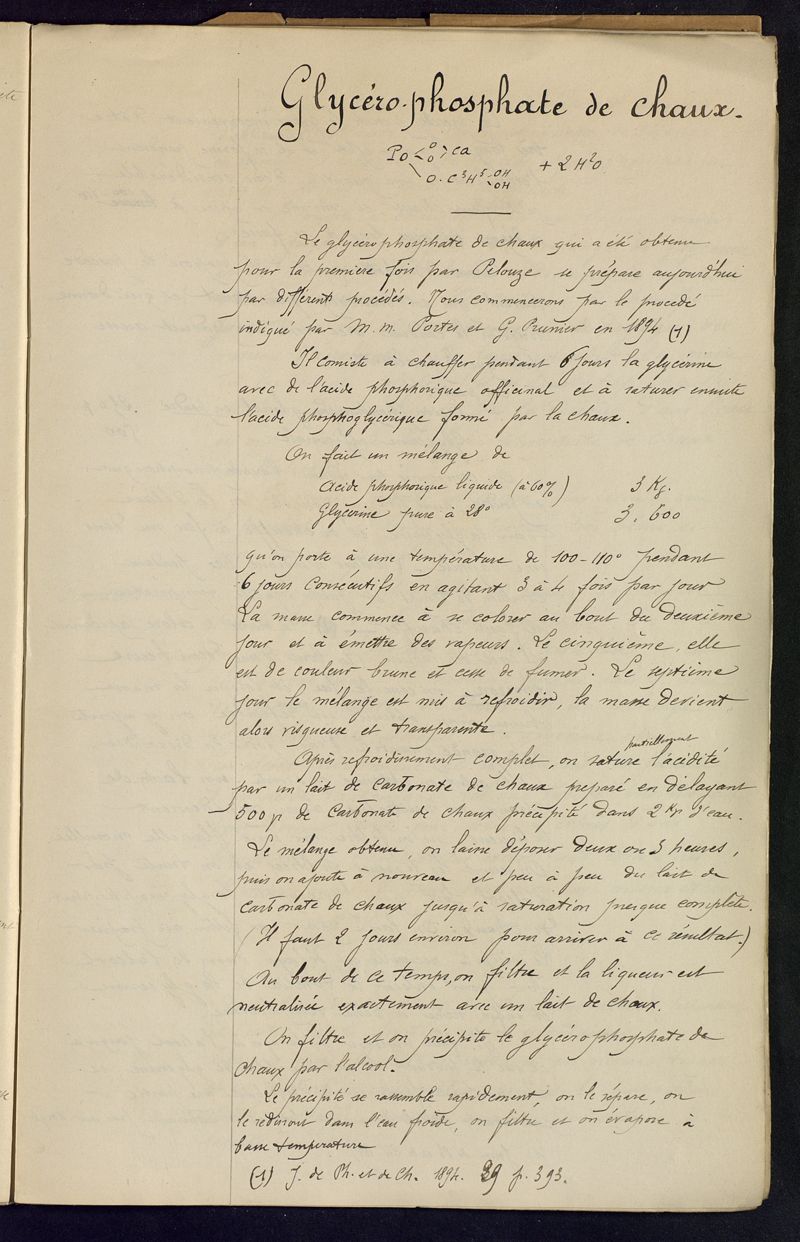 Glycéro-phosphate de chaux.
Po < O O > ca
O. C³H⁵ - OH - OH
+ 2 H²O
Le glycérophosphate de chaux qui a été obtenu
pour la première fois par Pelouze se prépare aujourd'hui
par différents procédés. Nous commencerons par le procédé
indiqué par M.M. Portes et G. Prunier en 1894 (1)
Il consiste à chauffer pendant 6 jours la glycérine
avec de l'acide phosphorique officinal et à saturer ensuite
l'acide phosphoglycérique formé par la chaux.
On fait un mélange de
Acide phosphorique liquide (à 60%) 3 Kg.
Glycérine pure à 28° 3. 600
qu'on porte à une température de 100-110° pendant
6 jours consécutifs en agitant 3 à 4 fois par jour
La masse commence à se colorer au bout du deuxième
jour et à émettre des vapeurs. Le cinquième, elle
est de couleur brune et cesse de fumer. Le septième
jour le mélange est mis à refroidir, la masse devient
alors visqueuse et transparente.
partiellement
Après refroidissement complet, on sature l'acidité
par un lait de carbonate de chaux préparé en délayant
500 gr de carbonate de chaux précipité dans 2 Kg d'eau.
Le mélange obtenu, on laisse déposer deux ou 3 heures,
puis on ajoute à nouveau et peu à peu du lait de
carbonate de chaux jusqu'à saturation presque complète.
(Il faut 2 jours environ pour arriver à ce résultat.)
Au bout de ce temps, on filtre et la liqueur est
neutralisée exactement avec un lait de chaux.
On filtre et on précipite le glycérophosphate de
chaux par l'alcool.
Le précipité se rassemble rapidement, on le sépare, on
le redissout dans l'eau froide, on filtre et on évapore à
basse température
(1) J. de Ph. et de Ch. 1894. 29 p. 393.